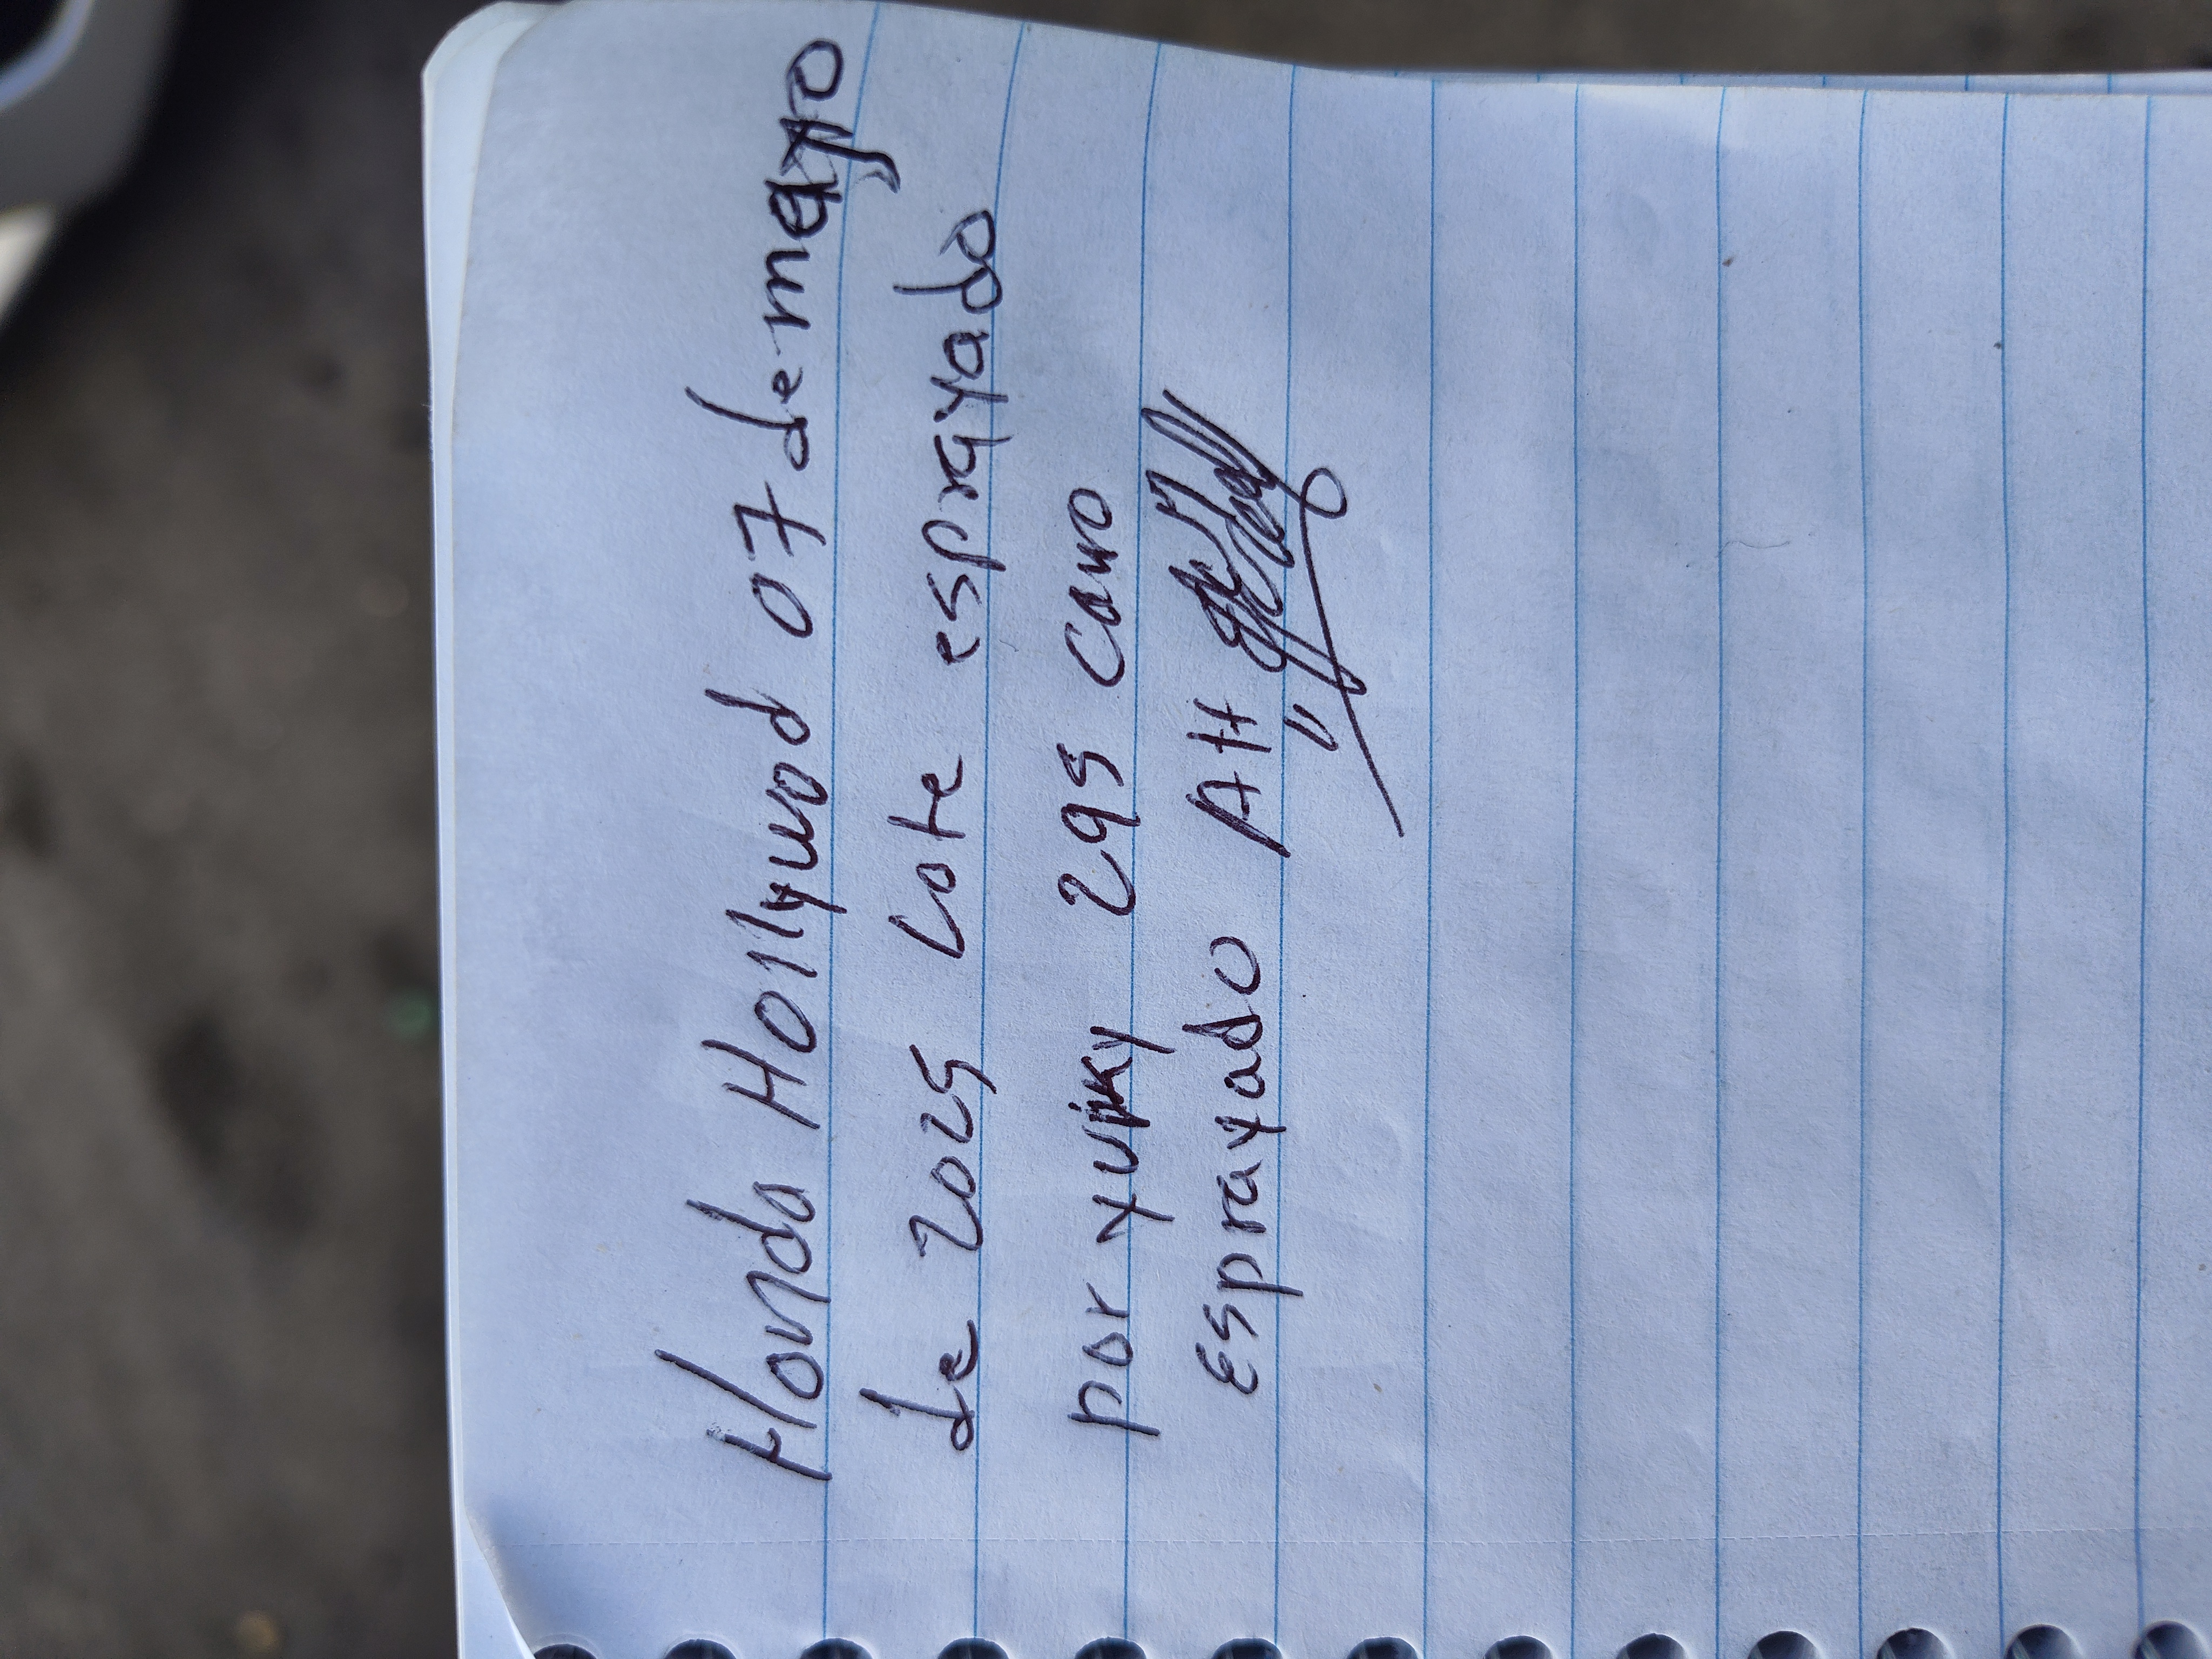 Honda Hollywod 07 de mayo
de 2025 Lote esprayado
por yuiky 295 Carro
Esprayado AH